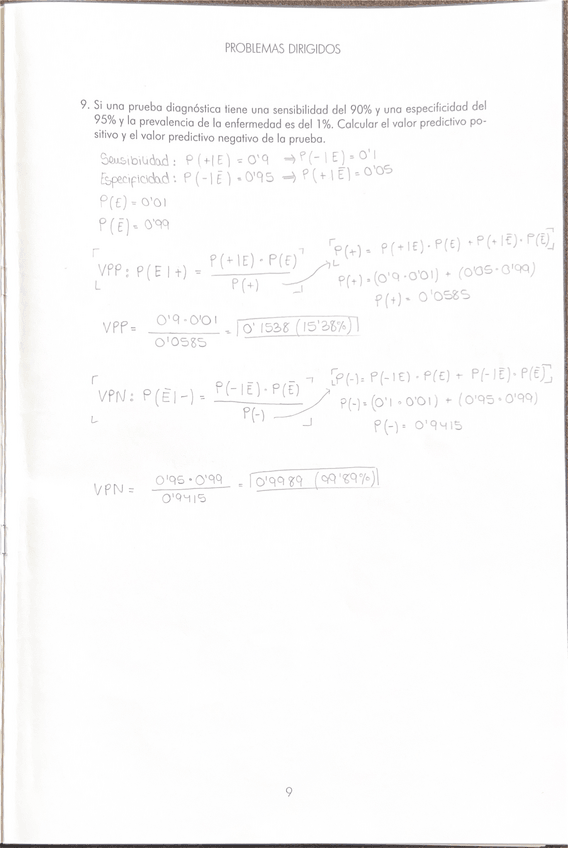 PROBLEMAS DIRIGIDOS
9. Si una prueba diagnóstica tiene una sensibilidad del 90% y una especificidad del
95% y la prevalencia de la enfermedad es del 1%. Calcular el valor predictivo po-
sitivo y el valor predictivo negativo de la prueba.
Sensibilidad: P(+|E) = 0'9 ⇒ P(-|E) = 0'1
Especificidad: P(-|Ē) = 0'95 ⇒ P(+|Ē) = 0'05
P(E) = 0'01
P(Ē) = 0'99
VPP: P(E|+) = P(+|E) · P(E) / P(+)
P(+) = P(+|E) · P(E) + P(+|Ē) · P(Ē)
P(+) = (0'9 · 0'01) + (0'05 · 0'99)
P(+) = 0'0585
VPP = 0'9 · 0'01 / 0'0585 = 0'1538 (15'38%)
VPN: P(Ē|-) = P(-|Ē) · P(Ē) / P(-)
P(-) = P(-|E) · P(E) + P(-|Ē) · P(Ē)
P(-) = (0'1 · 0'01) + (0'95 · 0'99)
P(-) = 0'9415
VPN = 0'95 · 0'99 / 0'9415 = 0'9989 (99'89%)
9